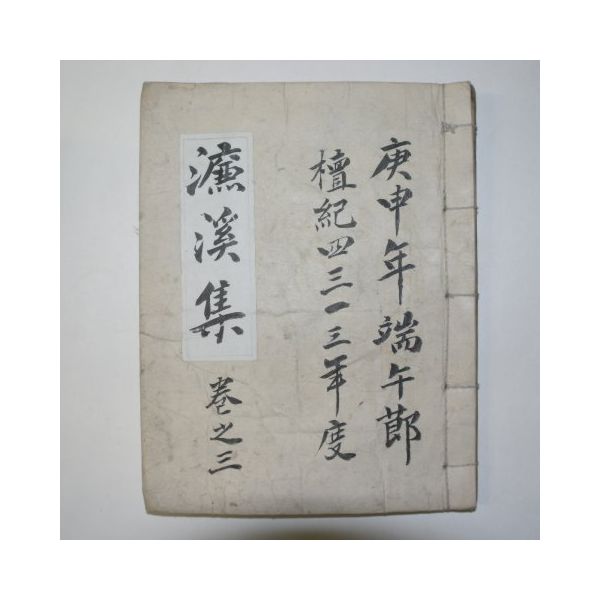 庚申年端午節
檀紀四三一三年度
濂溪集
卷之三